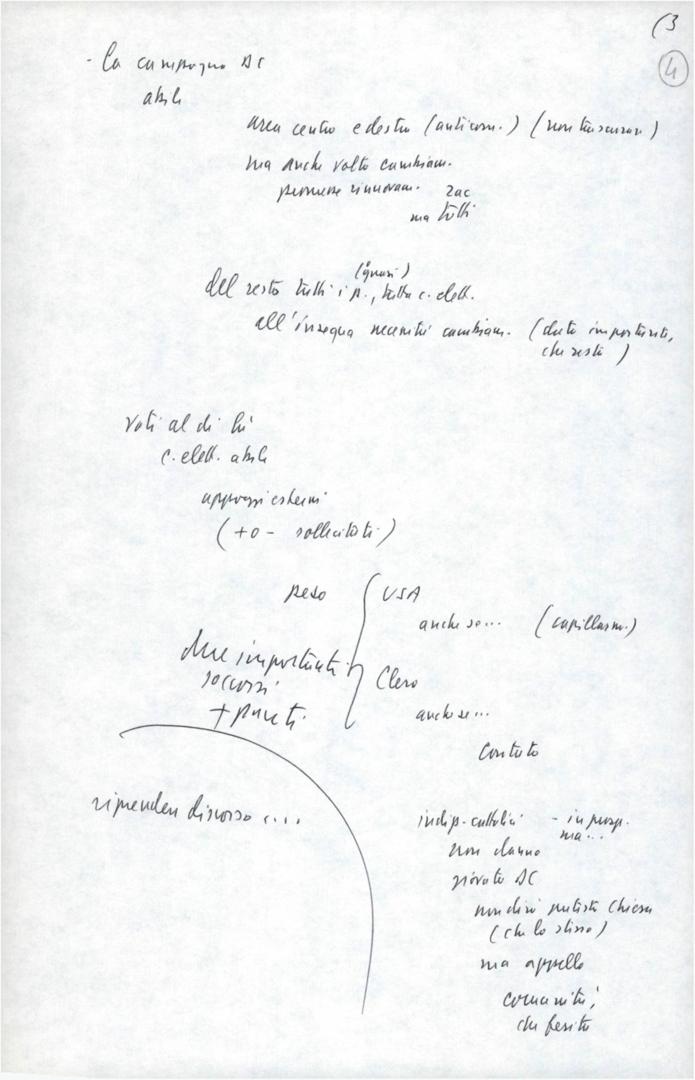 (3
4
- la campagna DC
abile
area centro e destra (anticom.) (non trascurare)
ma anche volto cambiam.
promesse rinnovam. Zac
ma tutti
(quasi)
Del resto tutti i p., tutta c. elett.
all'insegna necessità cambiam. (dato importante,
che resta)
voti al di là
c. elett. abile
appoggi esterni
(+ o - sollecitati)
peso USA
anche se... (capillarm.)
due importanti
soccorsi
+ punti
Clero
anche se...
contato
riprendere discorso ....
indip. cattolici - in prosp.
ma...
non danno
giovato DC
non dirò partito Chiesa
(che lo stesso)
ma appello
comunità,
che ferito